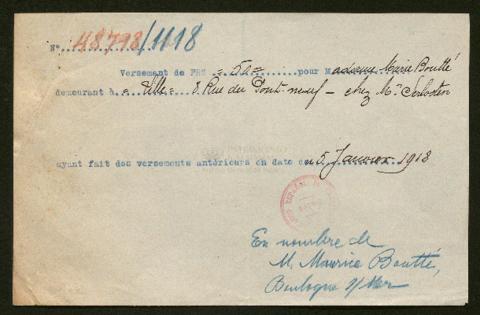 N° 48798/1118
Versement de FRS = 50 = pour Madame Marie Boutté
demeurant à = Ville = 8. Rue du Pont-neuf – chez Mr
ayant fait des versements antérieurs en date du 5 Janvier 1918
En nombre de
M. Maurice Boutté,
Boulogne s/Mer